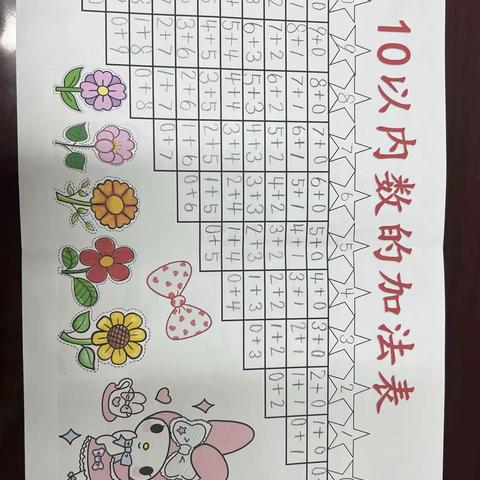 10以内数的加法表
9 8 7 6 5 4 3 2 1
9+0 8+0 7+0 6+0 5+0 4+0 3+0 2+0 1+0
8+1 7+1 6+1 5+1 4+1 3+1 2+1 1+1 0+1
7+2 6+2 5+2 4+2 3+2 2+2 1+2 0+2
6+3 5+3 4+3 3+3 2+3 1+3 0+3
5+4 4+4 3+4 2+4 1+4 0+4
4+5 3+5 2+5 1+5 0+5
3+6 2+6 1+6 0+6
2+7 1+7 0+7
1+8 0+8
0+9